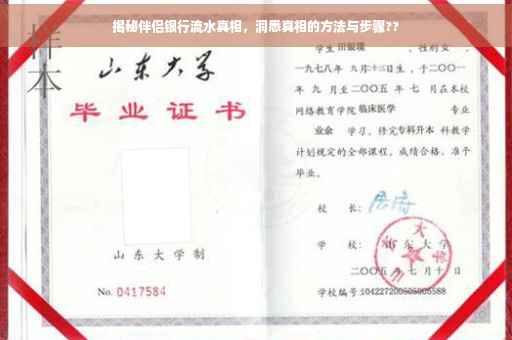 揭秘伴侣银行流水真相，洞悉真相的方法与步骤??
样本
山东大学
毕业证书
山东大学制
No. 0417584
学生 田银瑞 ，性别女，
一九七八年 九月十三日生，于二〇〇一
年 九 月至二〇〇五 年 七 月在本校
网络教育学院 临床医学 专业
业余 学习，修完 专科升本 科教学
计划规定的全部课程，成绩合格，准予
毕业。
校 长：
学 校：山东大学
二〇〇五 年 七 月 十 日
学校编号: